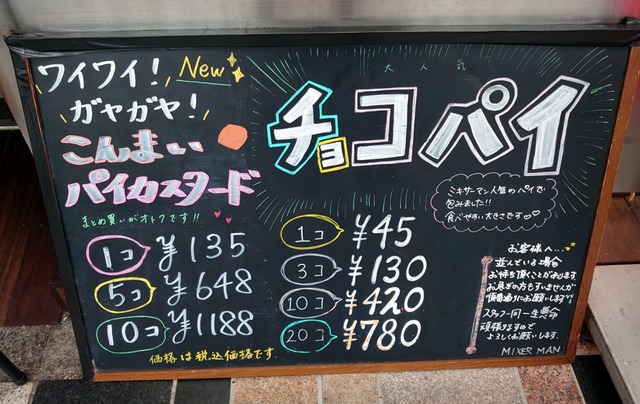 ワイワイ! New
ガヤガヤ!
こんまい
パイカスタード
まとめ買いがオトクです!!
1コ ¥135
5コ ¥648
10コ ¥1188
価格は税込価格です。
大人気
チョコパイ
ミキサーマン人気のパイで
包みました!!
食べやすい大きさです♡♡
1コ ¥45
3コ ¥130
10コ ¥420
20コ ¥780
お客様へ…
並んでいる場合
お待ち頂くことがあります
お急ぎの方もすいませんが
順番通りにお願いします
スタッフ一同一生懸命
頑張りますので
よろしくお願いします。
MIXER MAN